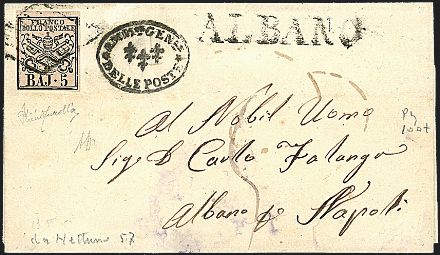 FRANCO
BOLLO POSTALE
BAJ·5
DELLE POSTE
ALBANO
Al Nobil Uomo
Sig. D Carlo Falango
Albano p Napoli
da Nettuno 57